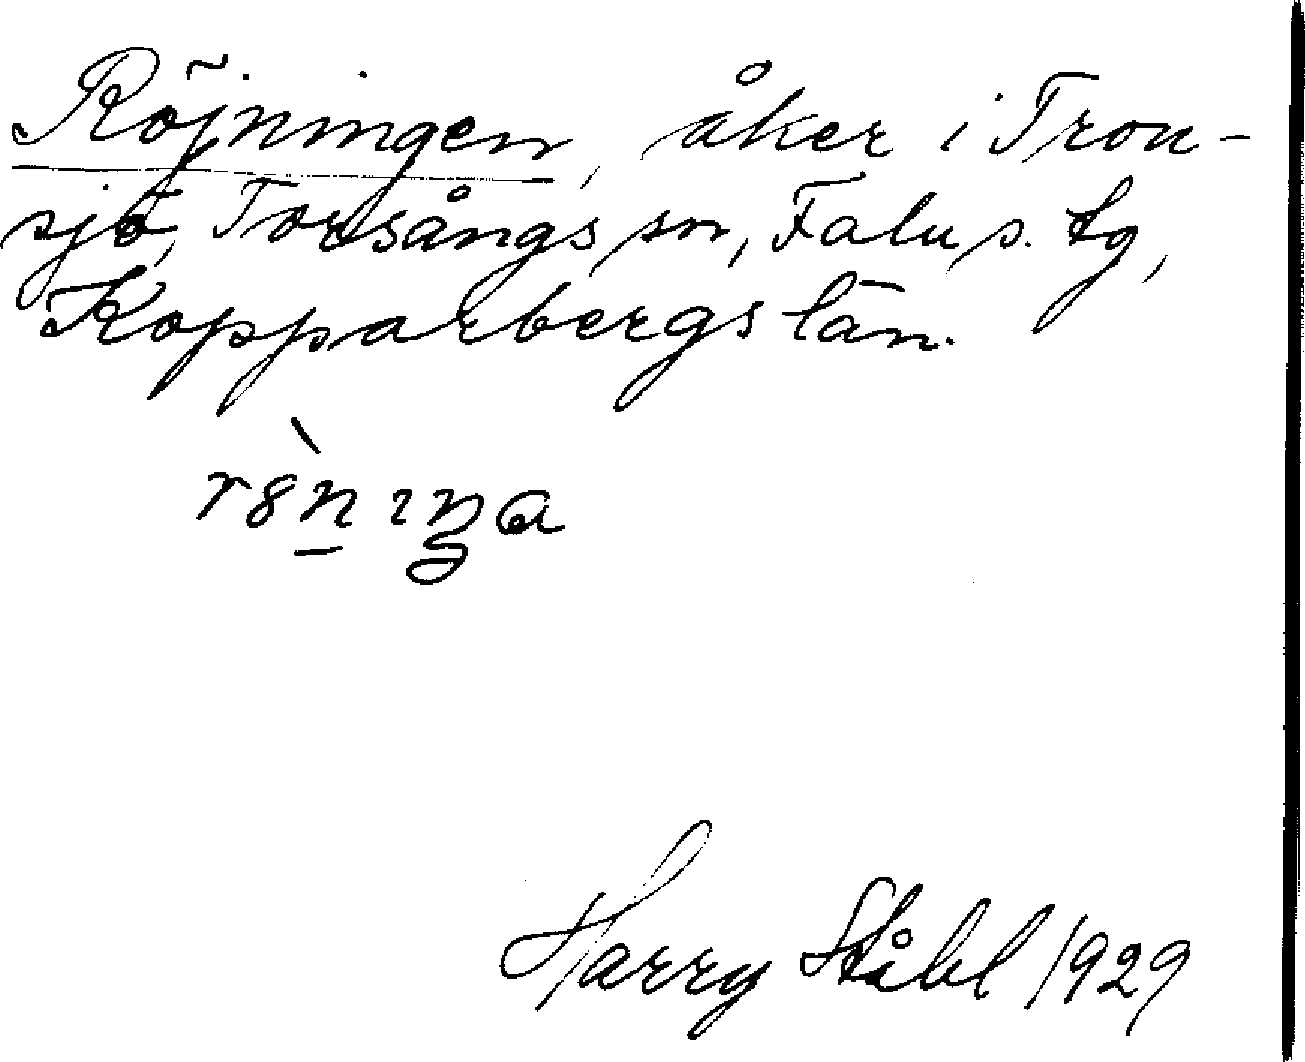 Röjningen, åker i Tron-
sjö, Torsångs sn, Falu s. tg,
Kopparbergs län.
Harry Ståhl 1929